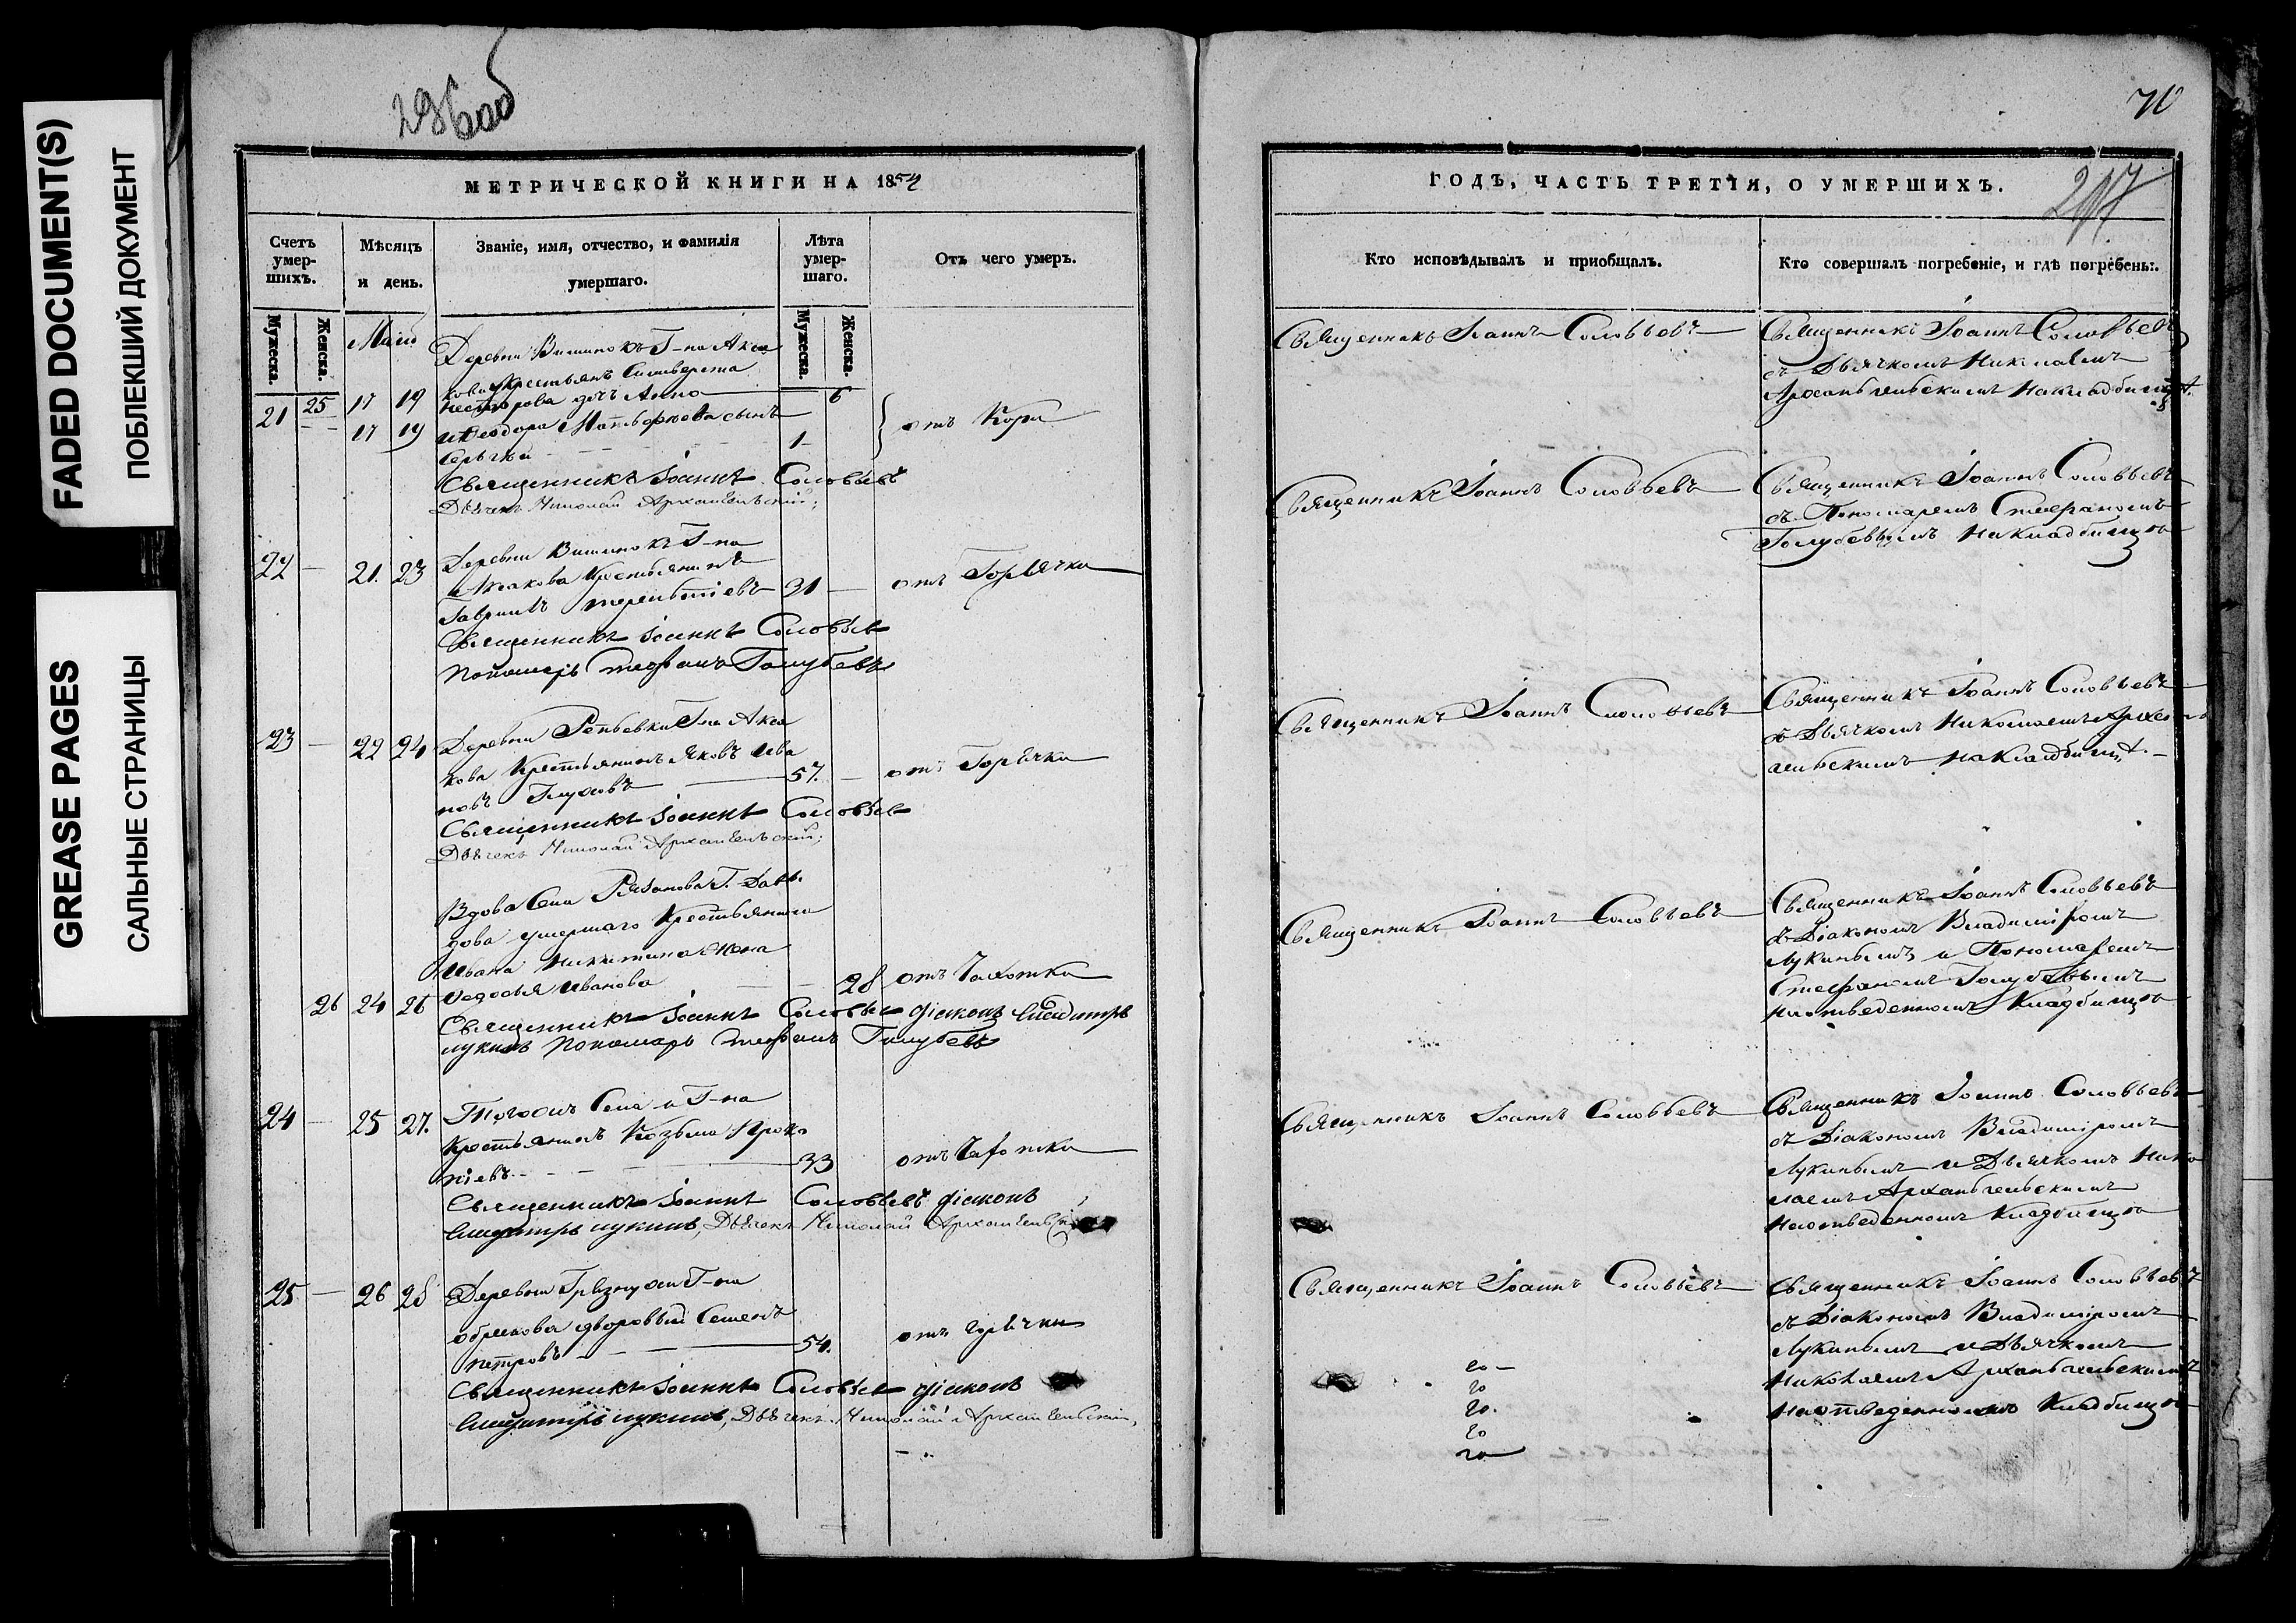 FADED DOCUMENT(S)
ПОБЛЕКШИЙ ДОКУМЕНТ
GREASE PAGES
САЛЬНЫЕ СТРАНИЦЫ
296 об
МЕТРИЧЕСКОЙ КНИГИ НА 1854
Счетъ умер-шихъ.
Мѣсяцъ и день.
Званіе, имя, отчество, и фамилія умершаго.
Лѣта умер-шаго.
Отъ чего умеръ.
Мужеска. Женска.
Мужеска. Женска.
Маій
Деревни Вишнокъ Г-на Акса
кова Крестьянъ Сильверста
21 25 17 19 Нестерова дочь Анна 6
17 19 и Ѳеодора сынъ 1 отъ Кори
Сергѣй
Священникъ Іоаннъ Соловьевъ
Дьячекъ Николай Архангельскій;
Деревни Вишнокъ Г-на
22 — 21. 23 Аксакова Крестьянинъ
Гавріилъ Терентіевъ 31 — отъ Горячки
Священникъ Іоаннъ Соловьев
Пономарь Стефанъ Голубевъ
23 — 22 24 Деревни Репьевки Г-на Акса
кова Крестьянинъ Яковъ Ива
новъ Глуховъ 57. — отъ Горячки
Священникъ Іоаннъ Соловьев
Дьячекъ Николай Архангельскій;
Вдова Села Рязанова Г. Давы
дова умершаго Крестьянина
Ивана Никитина жена
26 24 26 Ѳедосья Иванова 28 отъ Чахотки
Священникъ Іоаннъ Соловьев діаконъ Владиміръ
Лукинъ Пономарь Стефанъ Голубевъ
24 — 25 27. Тогожъ Села и Г-на
Крестьянинъ Козьма Проко
піевъ 33 отъ Чахотки
Священникъ Іоаннъ Соловьевъ діаконъ
Владиміръ Лукинъ, Дьячекъ Николай Архангельскій
25 — 26 28 Деревни Грязнухи Г-на
Обрескова дворовый Семенъ
Петровъ 54. отъ горячки
Священникъ Іоаннъ Соловьев діаконъ
Владиміръ Лукинъ, Дьячекъ Николай Архангельскій,
70
297
ГОДЪ, ЧАСТЬ ТРЕТІЯ, О УМЕРШИХЪ.
Кто исповѣдывалъ и приобщалъ.
Кто совершалъ погребеніе, и гдѣ погребены.
Священникъ Іоаннъ Соловьевъ
Священникъ Іоаннъ Соловьевъ
съ Дьячкомъ Николаемъ
Архангельскимъ на кладбищѣ.
Священникъ Іоаннъ Соловьевъ
Священникъ Іоаннъ Соловьевъ
съ Пономаремъ Стефаномъ
Голубевымъ на кладбищѣ
Священникъ Іоаннъ Соловьевъ
Священникъ Іоаннъ Соловьевъ
съ Дьячкомъ Николаемъ Архан
гельскимъ на кладбищѣ.
Священникъ Іоаннъ Соловьевъ
Священникъ Іоаннъ Соловьевъ
съ Діакономъ Владиміромъ
Лукинымъ и Пономаремъ
Стефаномъ Голубевымъ
на отведенномъ кладбищѣ
Священникъ Іоаннъ Соловьевъ
Священникъ Іоаннъ Соловьевъ
съ Діакономъ Владиміромъ
Лукинымъ и Дьячкомъ Нико
лаемъ Архангельскимъ
на отведенномъ кладбищѣ
Священникъ Іоаннъ Соловьевъ
Священникъ Іоаннъ Соловьевъ
съ Діакономъ Владиміромъ
Лукинымъ и Дьячкомъ
Николаемъ Архангельскимъ
на отведенномъ кладбищѣ